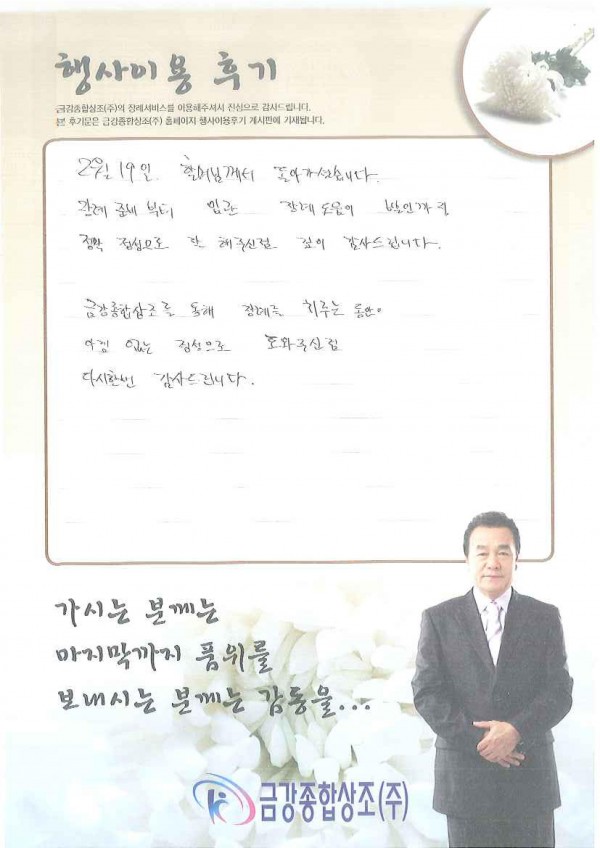 행사이용 후기
금강종합상조(주)의 장례서비스를 이용해주셔서 진심으로 감사드립니다.
본 후기문은 금강종합상조(주) 홈페이지 행사이용후기 게시판에 기재됩니다.
2월 19일 할머님께서 돌아가셨습니다.
장례 준비 부터 입관 장례도움이 발인까지
정성으로 깊이 감사드립니다.
금강종합상조를 통해 장례를 치루는 동안
아낌 없는 정성으로 도와주신점
다시한번 감사드립니다.
가시는 분께는
마지막까지 품위를
보내시는 분께는 감동을...
금강종합상조(주)